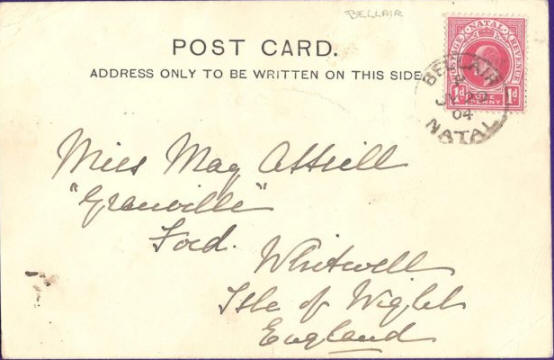 BELLAIR
POST CARD.
ADDRESS ONLY TO BE WRITTEN ON THIS SIDE
POSTAGE NATAL REVENUE
1d ONE PENNY 1d
BELLAIR
04
NATAL
Miss May Attrill
"Granville"
Ford.
Whitwell
Isle of Wight
England